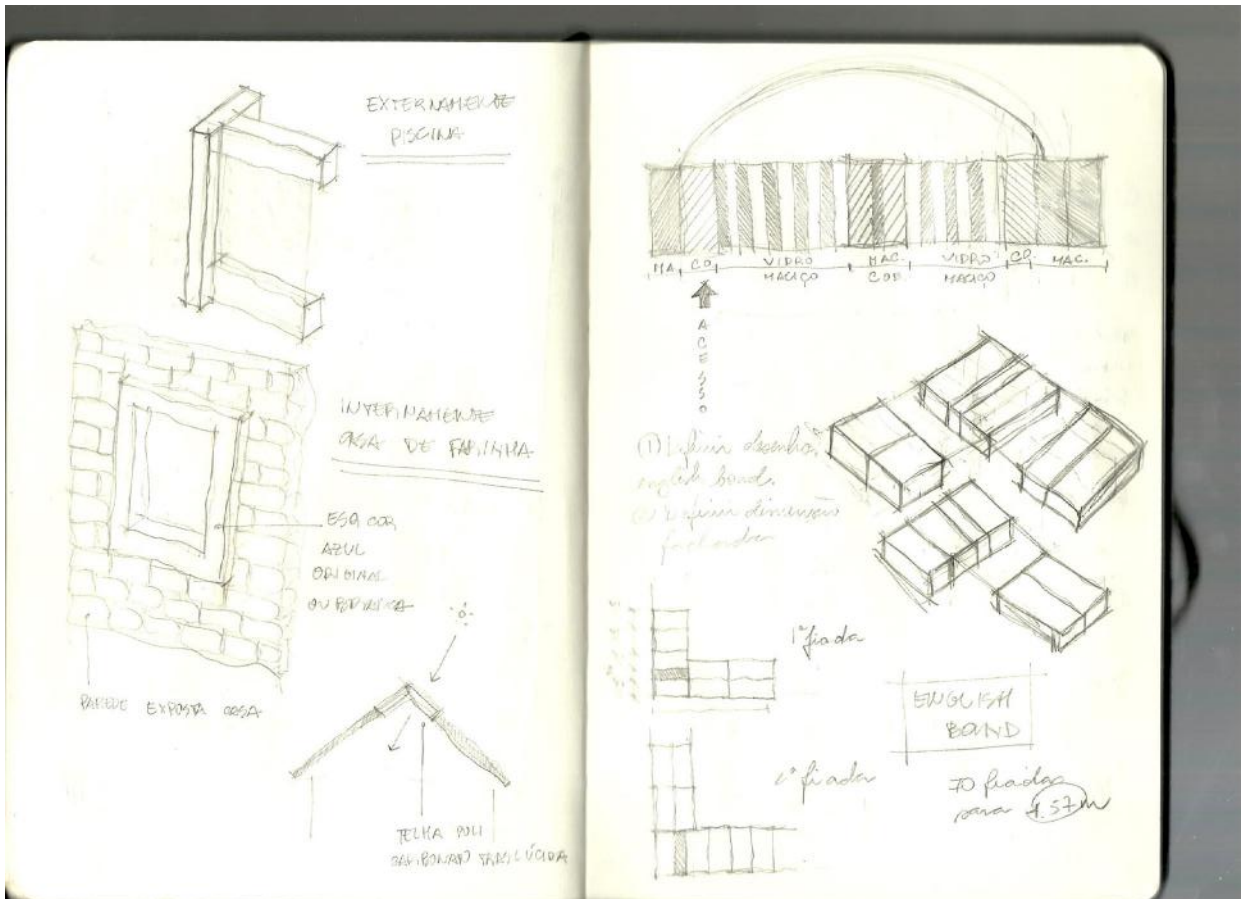 EXTERNAMENTE
PISCINA
INTERNAMENTE
CASA DE FARINHA
ESQ COR
AZUL
ORIGINAL
OU
PAREDE EXPOSTA CASA
TELHA POLI
CARBONATO TRANSLÚCIDA
MA. CO. VIDRO MAC. VIDRO CO. MAC.
MACIÇO COD. MACIÇO
ACESSO
(1) Definir desenho
english bond.
(2) Definir dimensão
fachadas
1ª fiada
2ª fiada
ENGLISH
BOND
70 fiadas
para 4.57m